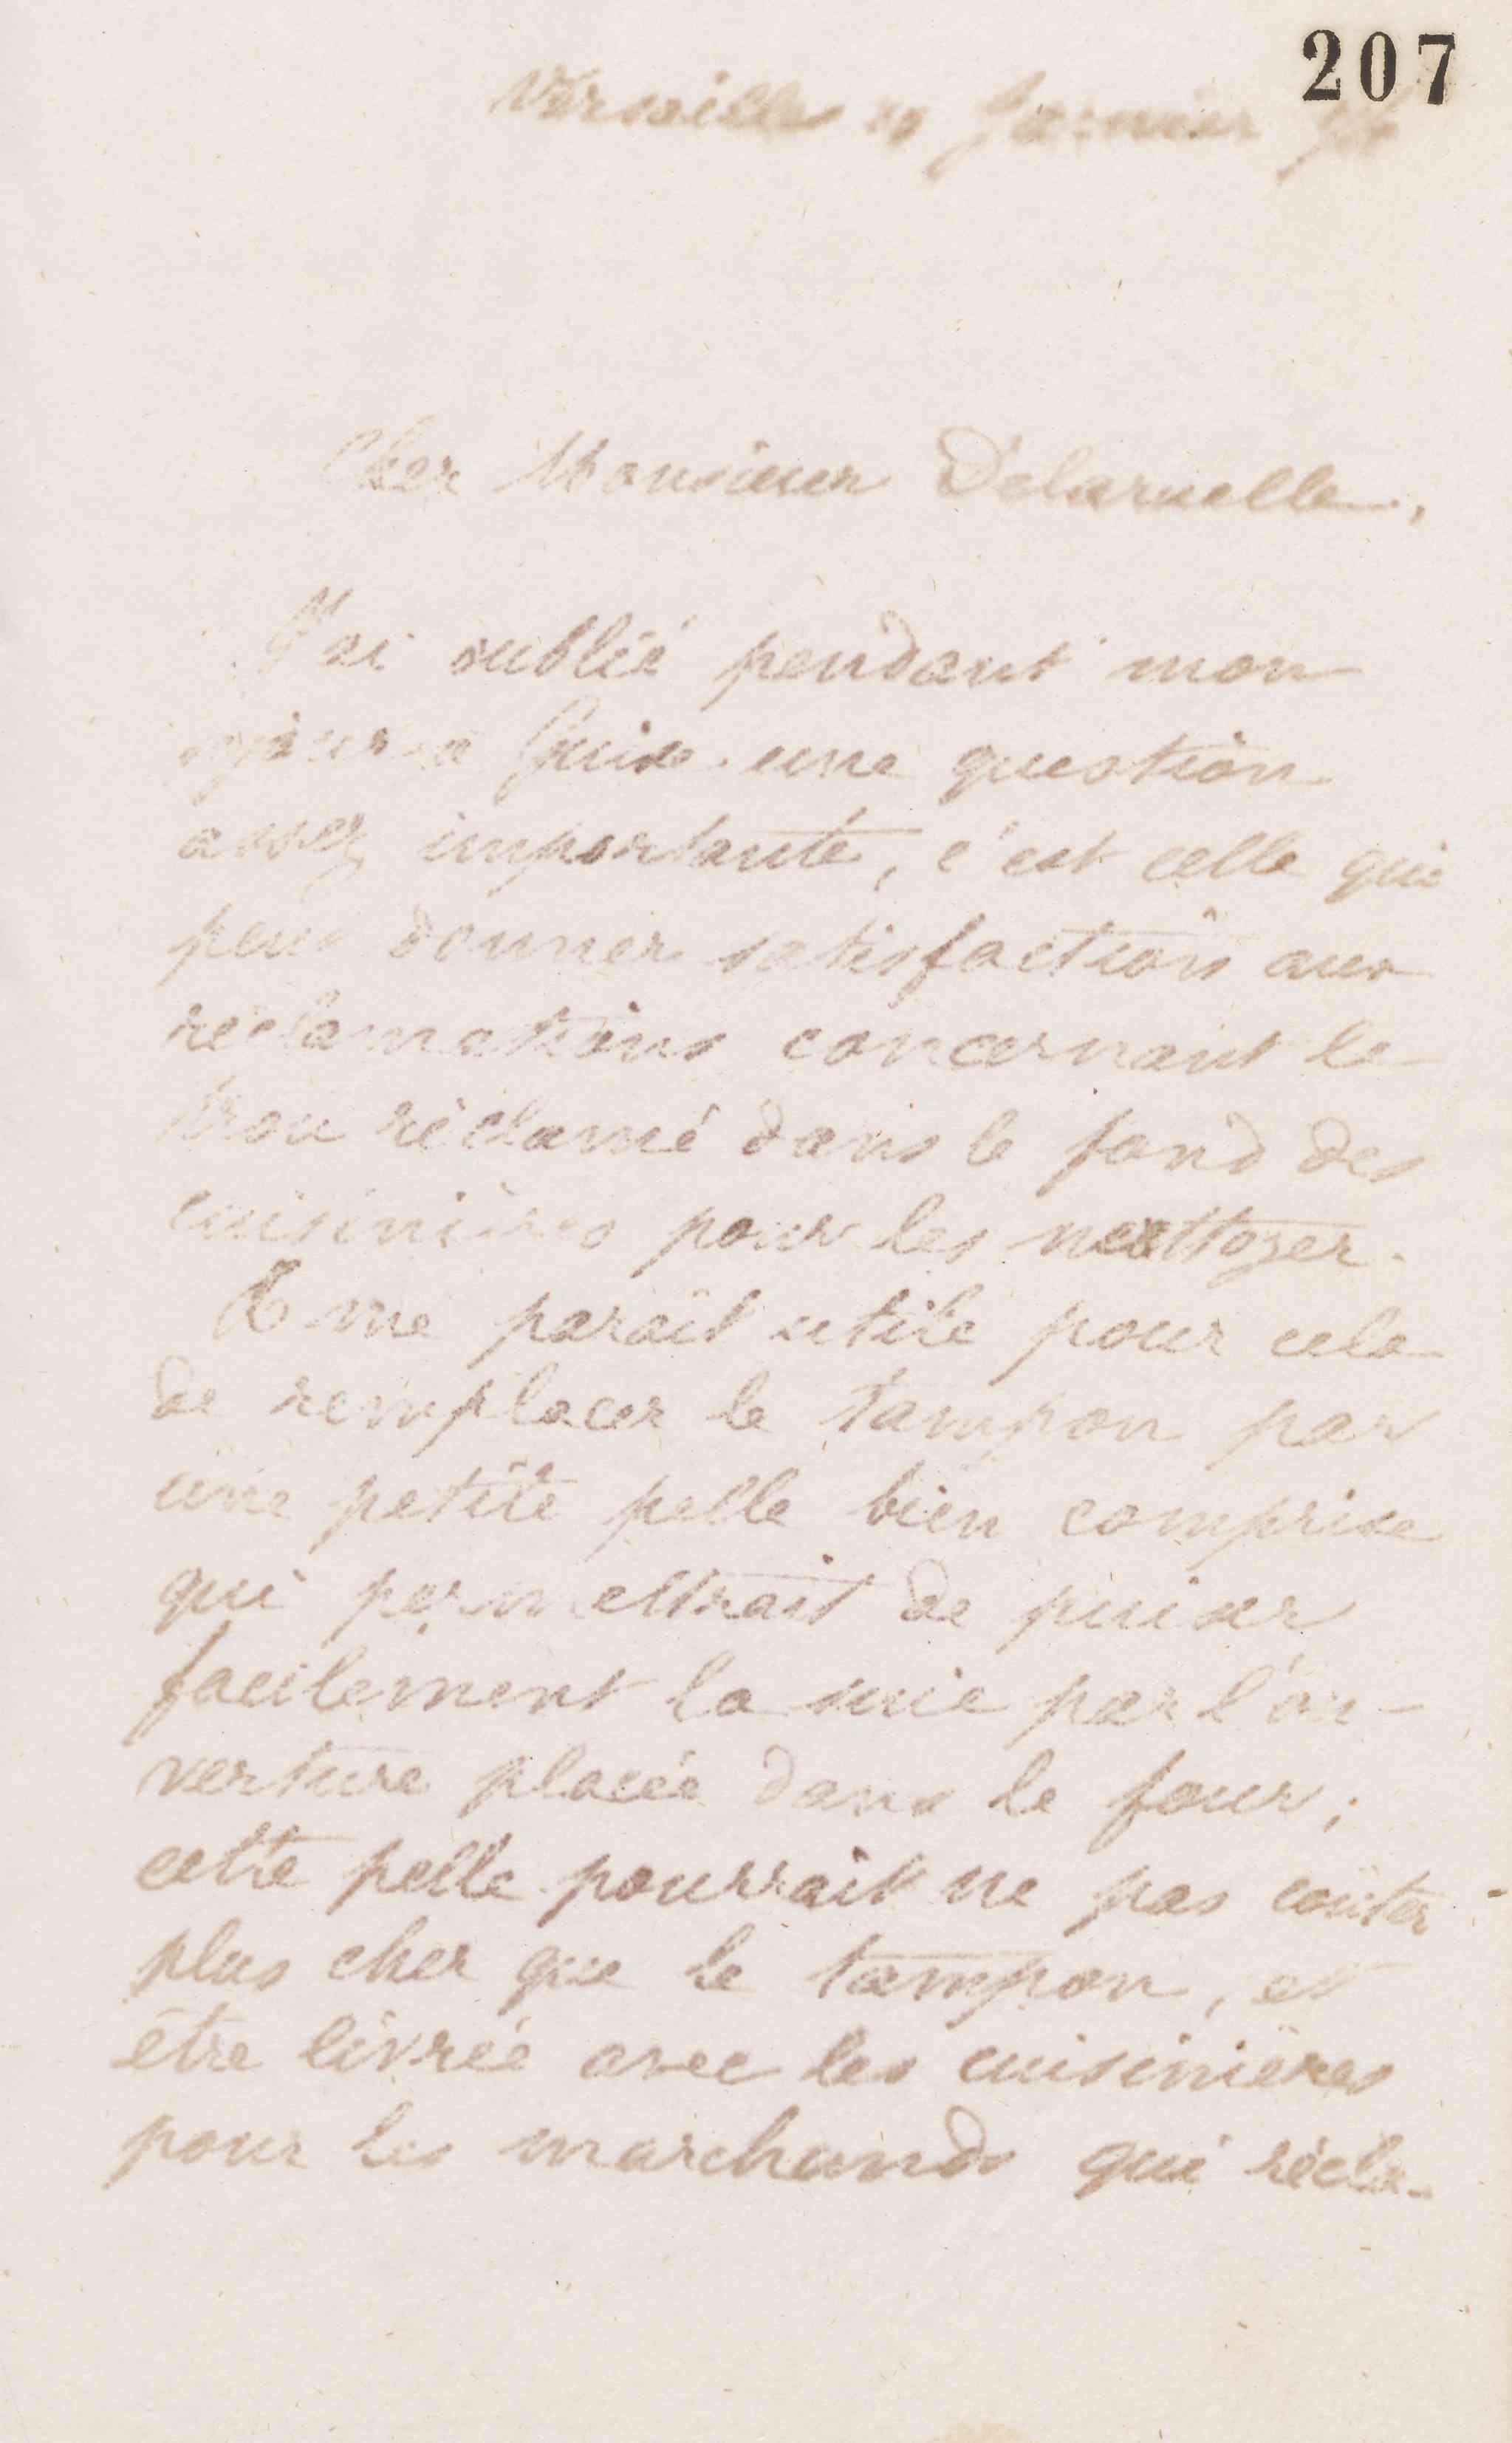 207
Versailles Janvier
Cher Monsieur Delaruelle,
J'ai oublié pendant mon
séjour à Guise une question
assez importante, c'est celle qui
peut donner satisfaction aux
réclamations concernant le
trou réclamé dans le fond des
cuisinières pour les nettoyer.
Il me parait utile pour cela
de remplacer le tampon par
une petite pelle bien comprise
qui permettrait de puiser
facilement la suie par l'ou-
verture placée dans le four;
cette pelle pourrait ne pas coûter
plus cher que le tampon, et
être livrée avec les cuisinières
pour les marchands qui récla-